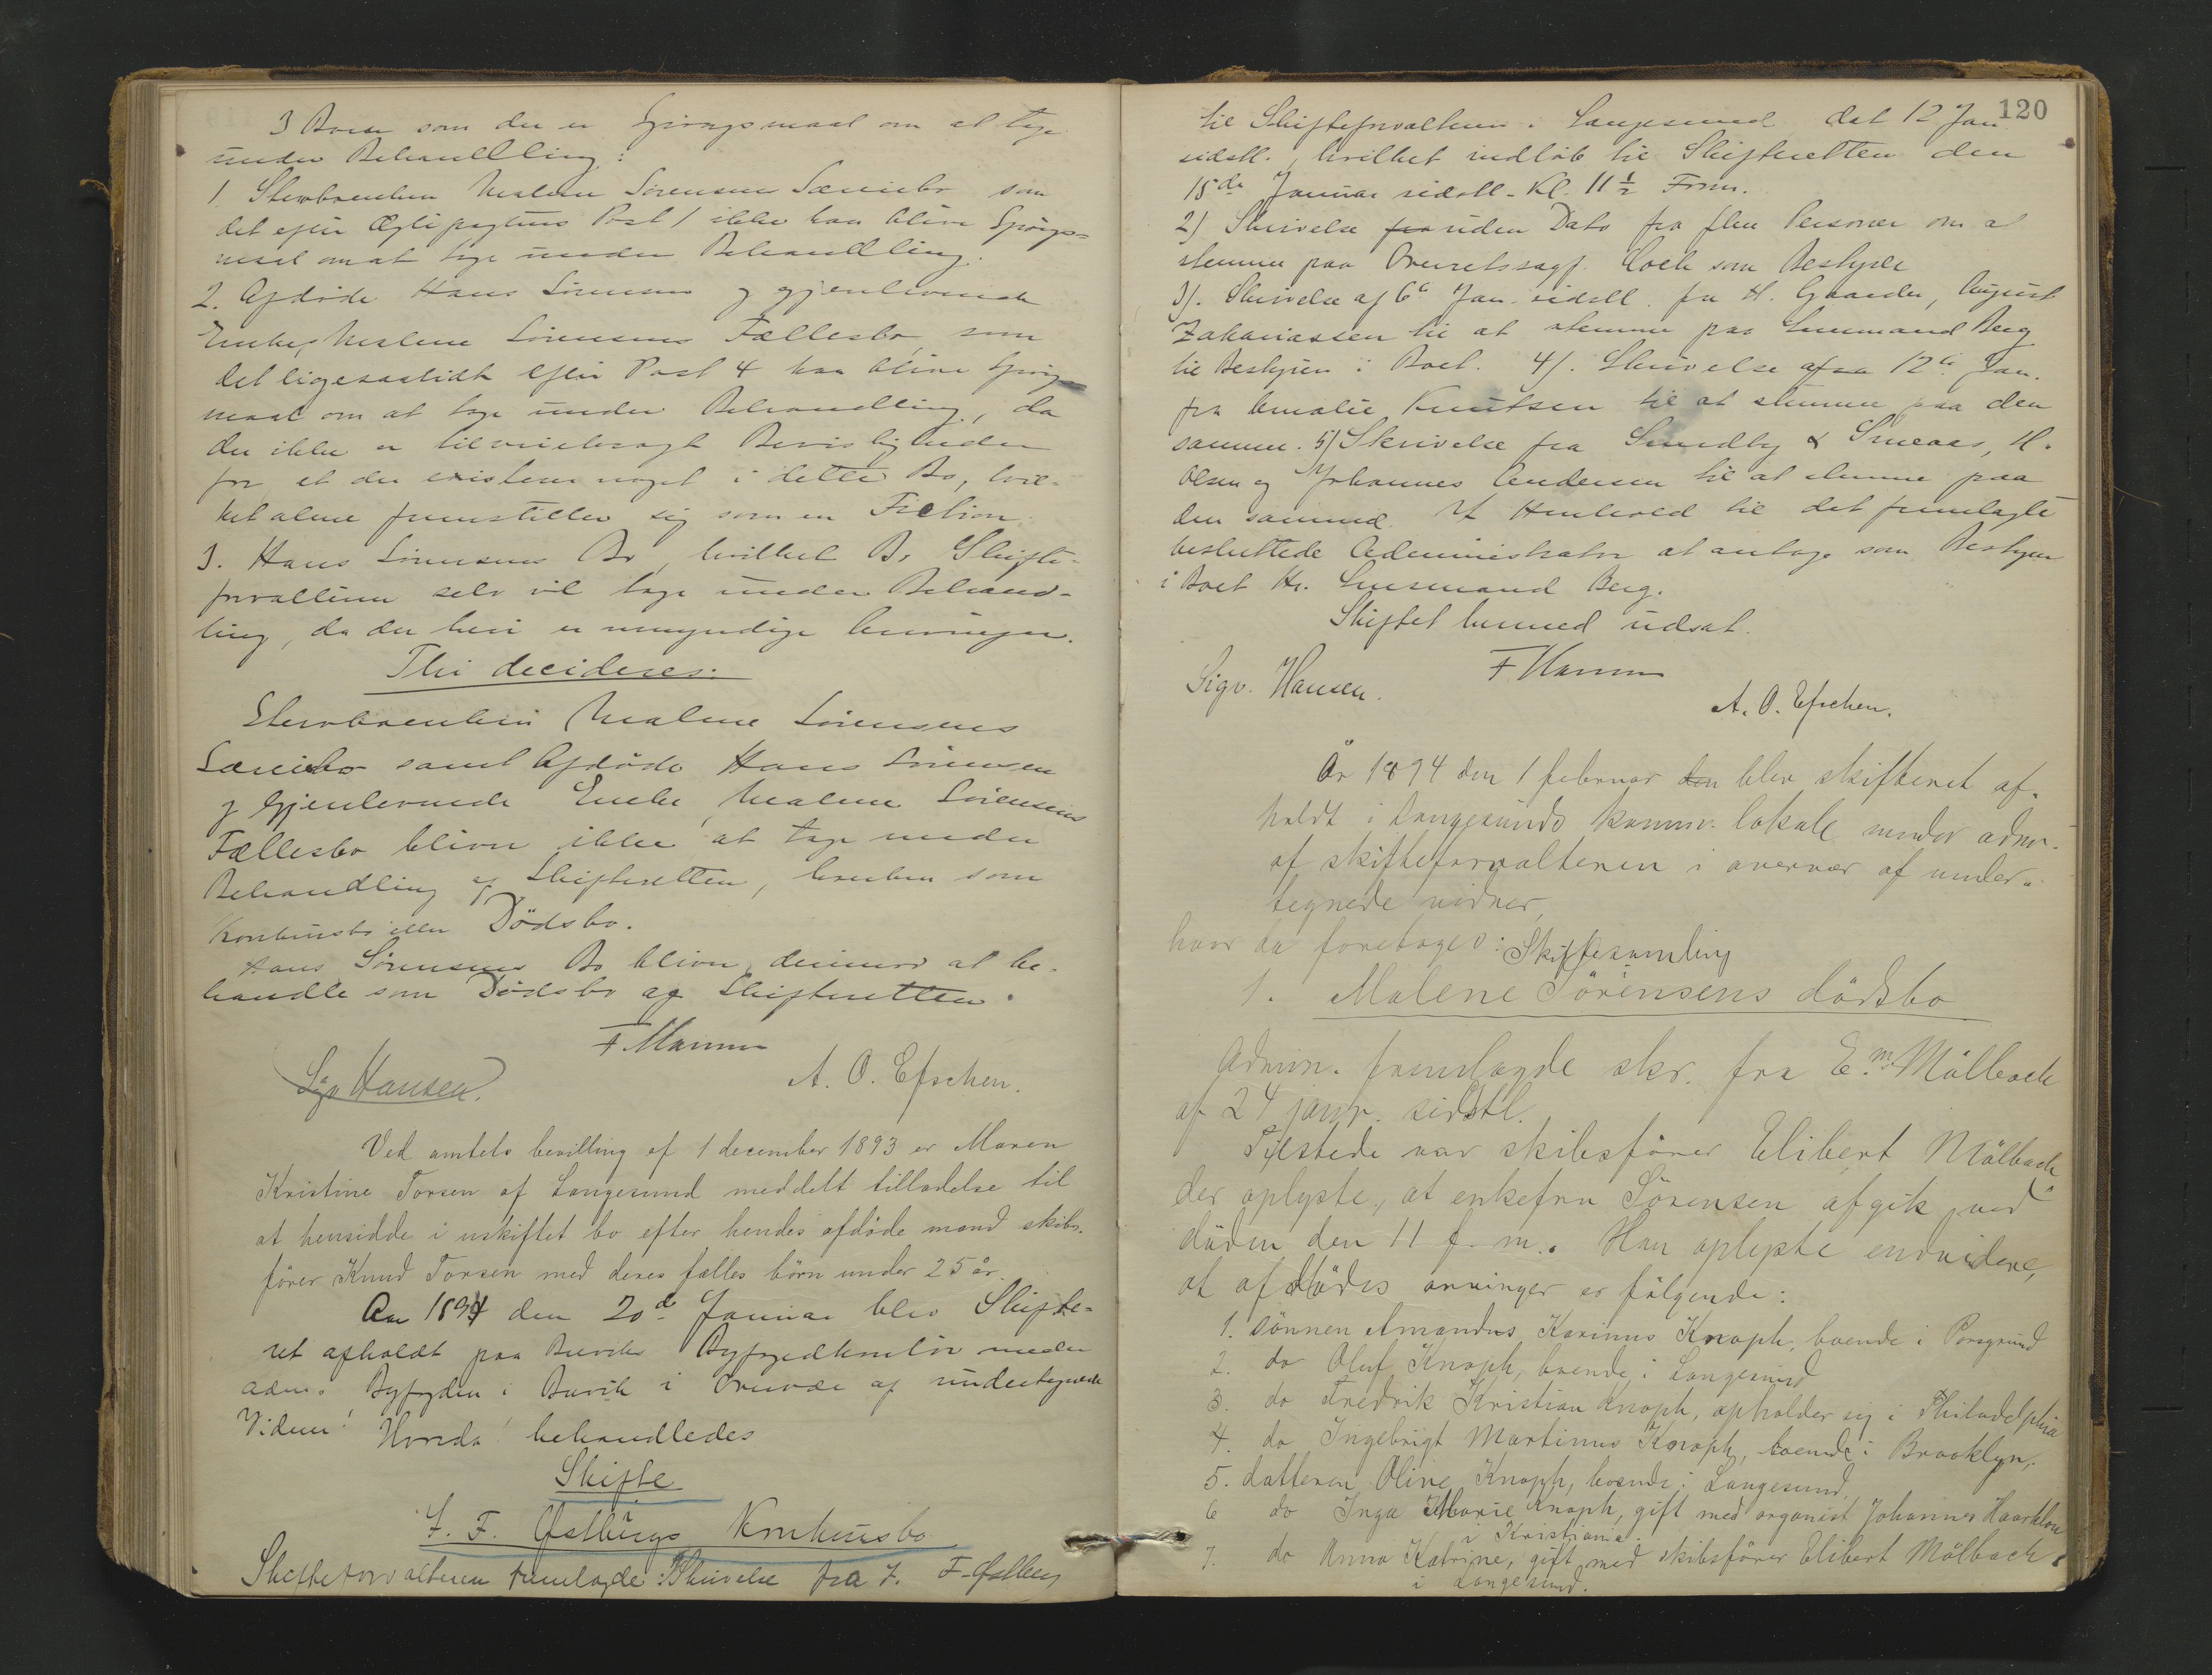 3 Boer som der er Spørgsmaal om at tage
under Behandlling:
1 Sterboenken Malene Sørensens Særeiebo som
det efter Ægtepagtens Post 1 ikke kan blive Spörgs-
maal om at tage under Behandlling.
2. Afdöde Hans Sörensens og gjenlevende
Enke, Malene Sörensens Fællesbo, som
det ligesaalidt efter Post 4 kan blive Spörgs
maal om at tage under Behandling, da
der ikke er tilveiebragt Bevisligheder
for at der existerer noget i dette Bo, hvil-
ket alene fremstiller sig som en Fiction.
3. Hans Sörensens Bo, hvilket Bo Skifte-
forvalteren selv vil tage under Behand-
ling, da der heri er umyndige Arvinger.
Thi decideres:
Sterboenken Malene Sörensens
Særeiebo samt Afdöde Hans Sörensen
og Gjenlevende Enke, Malene Sörensens
Fællesbo bliver ikke at tage under
Behandling af Skifteretten, hverken som
Konkursbo eller Dödsbo.
Hans Sörensens Bo bliver derimod at be-
handle som Dödsbo af Skifteretten.
F Hamm
Sigv Hansen.
A. O. Efschen.
Ved amtets bevilling af 1 december 1893 er Maren
Kristine Torsen af Langesund meddelt tilladelse til
at hensidde i uskiftet bo efter hendes afdøde mand skibs-
fører Knud Torsen med deres fælles børn under 25 år.
Aar 1894 den 20de Januar blev Skifte-
ret afholdt paa Breviks Byfogedkontor under
adm. Byfogden i Brevik i Overvær af undertegnede
Vidner! Hvorda! behandledes
Skifte
F. F. Østbergs Konkursbo
Skifteforvalteren fremlagde: 1) Skrivelse fra F. F. Østberg
120
til Skifteforvalteren i Langesund, dat 12 Jan
sidstl., hvilket indløb til Skifteretten den
15de Januar sidstl. Kl. 11 1/2 Form.
2) Skrivelse fra uden Dato fra flere Personer om at
stemme paa Overretssagf. Coch som Bestyrer
3). Skrivelse af 6te Jan. sidstl. fra H. Gaarder, August
Zakariassen til at stemme paa Lensmand Berg
til Bestyrer i Boet. 4). Skrivelse af 12te Jan.
fra Amalie Knutsen til at stemme paa den
samme. 5) Skrivelse fra Sundby & Smeaas, H.
Olsen og Johannes Andersen til at stemme paa
den samme. I Henhold til det fremlagte
besluttede Administrator at antage som Bestyrer
i Boet Hr. Lensmand Berg.
Skiftet hermed udsat.
F Hamm
Sigv. Hansen.
A. O. Efschen.
År 1894 den 1 februar den blev skifteret af-
holdt i Langesunds kommu. lokale under admr.
af skifteforvalteren i overvær af under-
tegnede vidner,
hvor da foretoges: Skiftesamling
1. Malene Sörensens dödsbo
Admin. fremlagde skr. fra E.m Mölbach
af 24 janr. sidstl.
Tilstede var skibsförer Elibert Mölbach
der oplyste, at enkefru Sörensen afgik ved
döden den 11 f. m. Han oplyste endvidere,
at afdödes arvinger er fölgende:
1. sönnen Amandus Karinus Knoph, boende i Porsgrund
2. do Oluf Knoph, boende i Langesund
3. do Fredrik Kristian Knoph, opholder sig i Philadelphia
4. do Ingebrigt Martinus Knoph, boende i Brooklyn,
5. datteren Oline Knoph, boende i Langesund,
6 do Inga Marie Knoph, gift med organist Johannes Haarklou
i Kristiania.
7. do Anna Katrine, gift med skibsförer Elibert Mölbach
i Langesund.